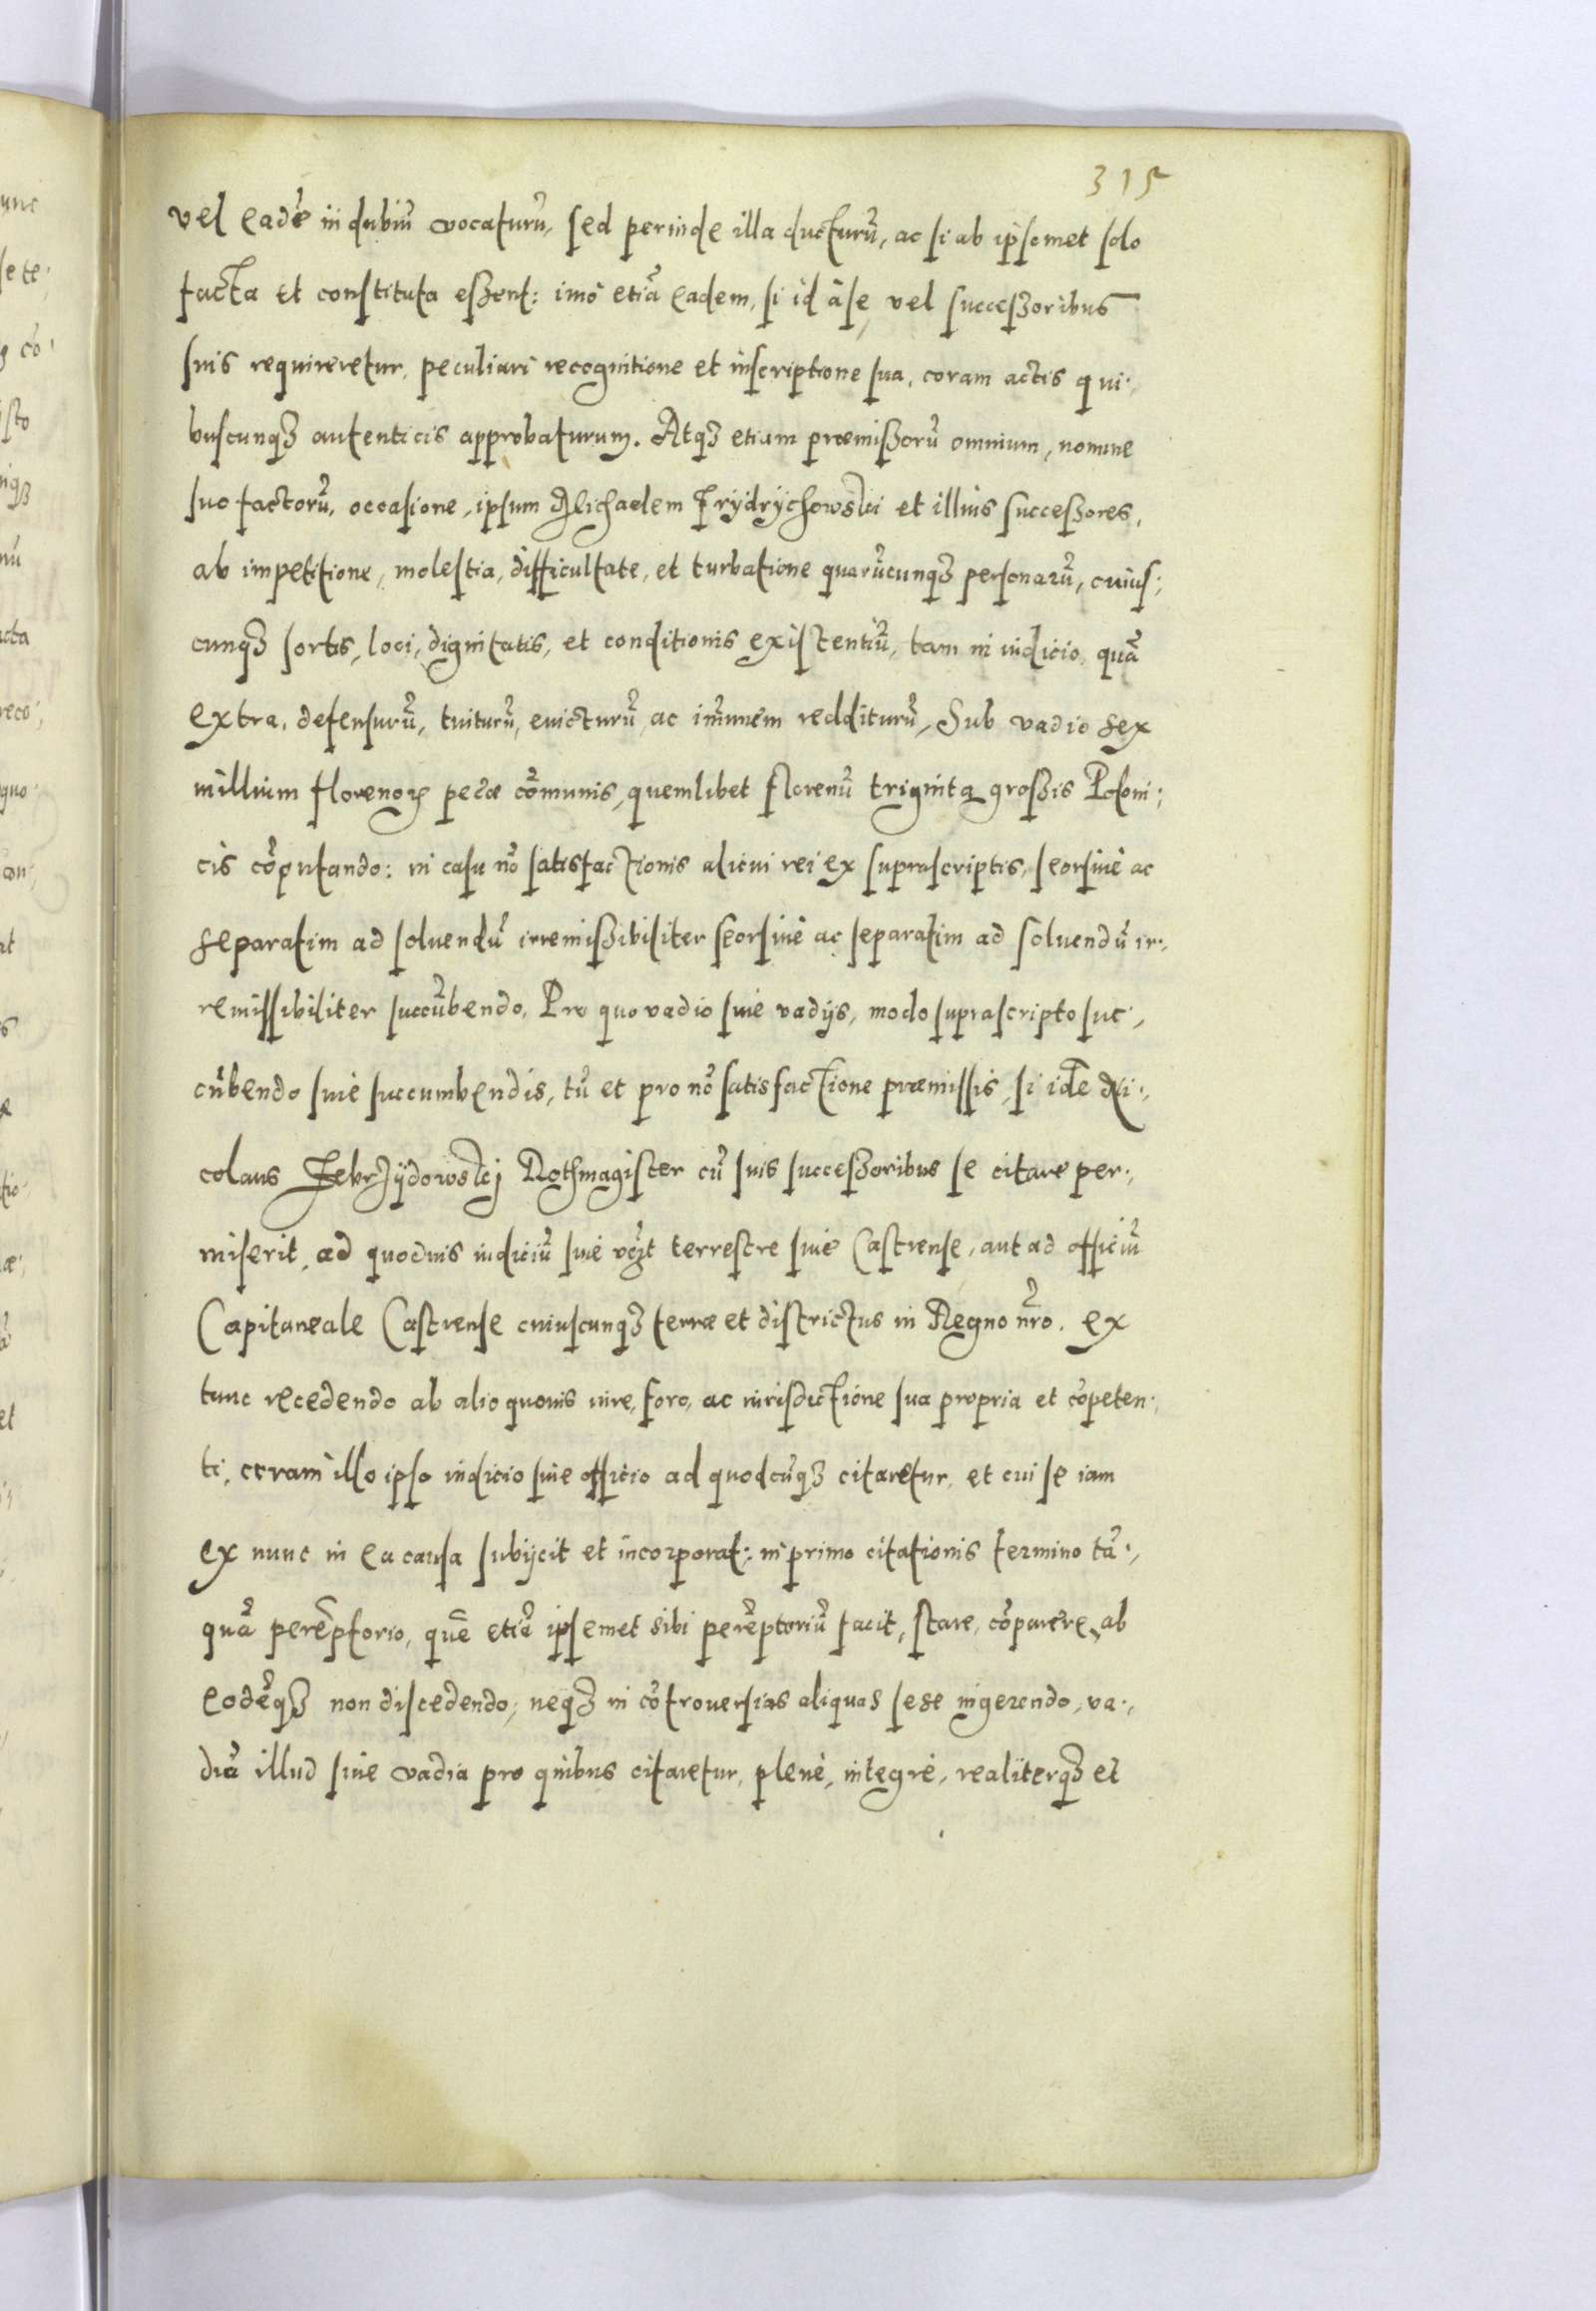 315
vel eadē in dubiū vocaturū, sed perinde illa ducturū, ac si ab ipsemet solo
facta et constituta essent: imò etiā eadem, si id à se, vel successoribus
suis requireretur, peculiari recognitione et inscriptione sua, coram actis qui:
buscunqȝ autenticis approbaturum. Atqȝ etiam præmissorū omnium, nomine
suo factorū, occasione, ipsum Michaelem Frydrychowski et illius successores,
ab impetitione, molestia, difficultate, et turbatione quarūcunqȝ personarū, cuius:
cunqȝ sortis, loci, dignitatis, et conditionis existentiū, tam in iudicio, quā
extra, defensurū, tuiturū, euicturū, ac imūnem redditurū, Sub vadio sex
millium florenoꝝ pecæ cōmunis, quemlibet florenū triginta grossis Poloni:
cis cōputando: in casu nō satisfactionis alicui rei ex suprascriptis, seorsiuè ac
separatim ad soluendū irremissibiliter seorsiuè ac separatim ad soluendū ir:
remissibiliter succūbendo. Pro quo vadio siue vadijs, modo suprascripto suc:
cūbendo siue succumbendis, tū et pro nō satisfactione præmissis, si idē Ni:
colaus Zebrzÿdowskj Rothmagister cū suis successoribus se citare per:
miserit, ad quoduis iudiciū siue terrestre siue Castrense, aut ad officiū
Capitaneale Castrense cuiuscunqȝ terræ et districtus in Regno nr̄o. ex
tunc recedendo ab alio quouis iure, foro, ac iurisdictione sua propria et cōpeten:
ti, coram illo ipso iudicio siue officio ad quodcūqȝ citaretur, et cui se iam
ex nunc in ea causa subijcit et incorporat: in primo citationis termino tā:
quā perēptorio, quē etiā ipsemet sibi perēptoriū facit, stare, cōparere, ab
eodēqȝ non discedendo, neqȝ in cōtrouersias aliquas sese ingerendo, va:
diū illud siue vadia pro quibus citaretur, plenè, integrè, realiterqȝ et